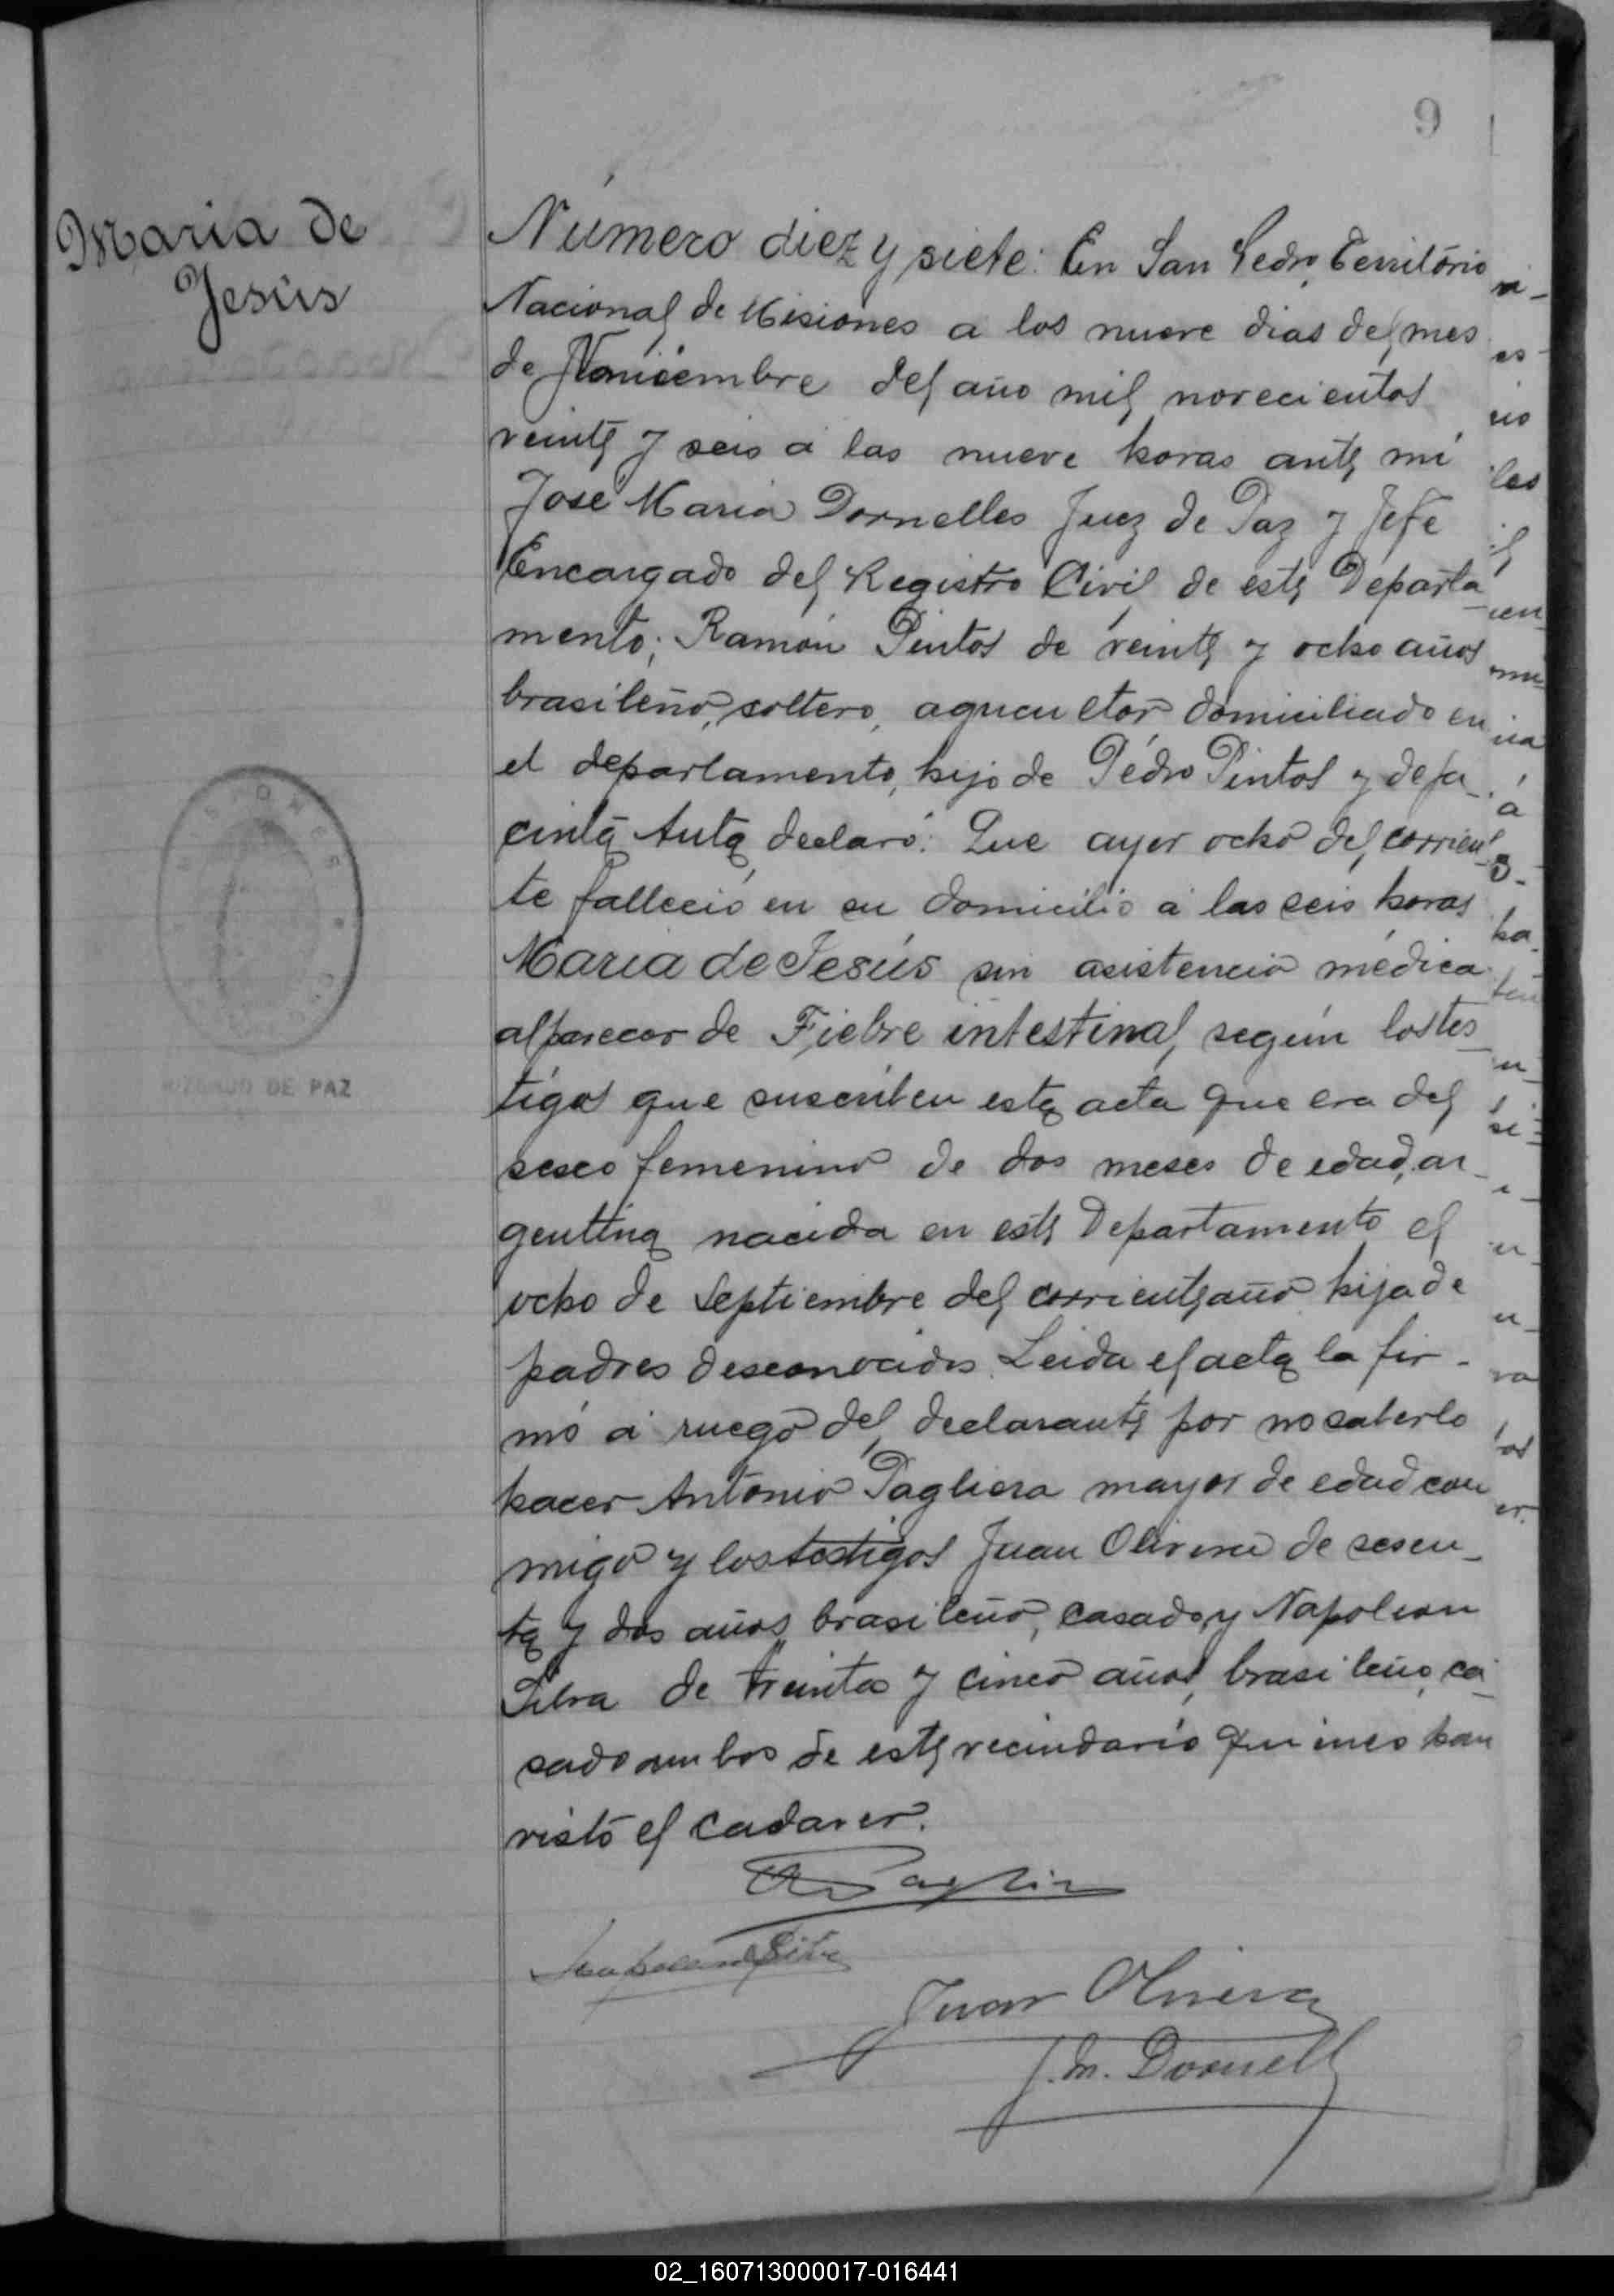 9
Maria de
Jesús
Número diez y siete: En San Pedro, Território
Nacional de Misiones a los nueve dias del mes
de Noviembre del año mil novecientos
veinte y seis á las nueve horas ante mi
José Maria Dornelles Juez de Paz y Jefe
Encargado del Registro Civil de este Departa
mento; Ramón Pintos de veinte y ocho años
brasileño, soltero, agricultor domiciliado en
el departamento, hijo de Pedro Pintos y de Ja
cinta Anta declaró: Que ayer ocho del corrien
te falleció en su domicilio á las seis horas
Maria de Jesús sin asistencia médica
al parecer de Fiebre intestinal, según los tes
tigos que suscriben esta acta que era del
sexo femenino de dos meses de edad, ar
gentina nacida en este Departamento el
ocho de Septiembre del corriente año hija de
padres desconocidos. Leida el acta la fir-
mó á ruego del declarante por no saberlo
hacer Antonio Pagliera mayor de edad con
migo y los testigos Juan Olivera de sesen-
ta y dos años, brasileño, casado, y Napoleon
Silva de treinta y cinco años, brasileño, ca
sado ambos de este vecindario quienes han
visto el cadaver.
Napoleon Silva
Juan Olivera
J. M. Dornell
MISIONES
JUZGADO DE PAZ
02_160713000017-016441